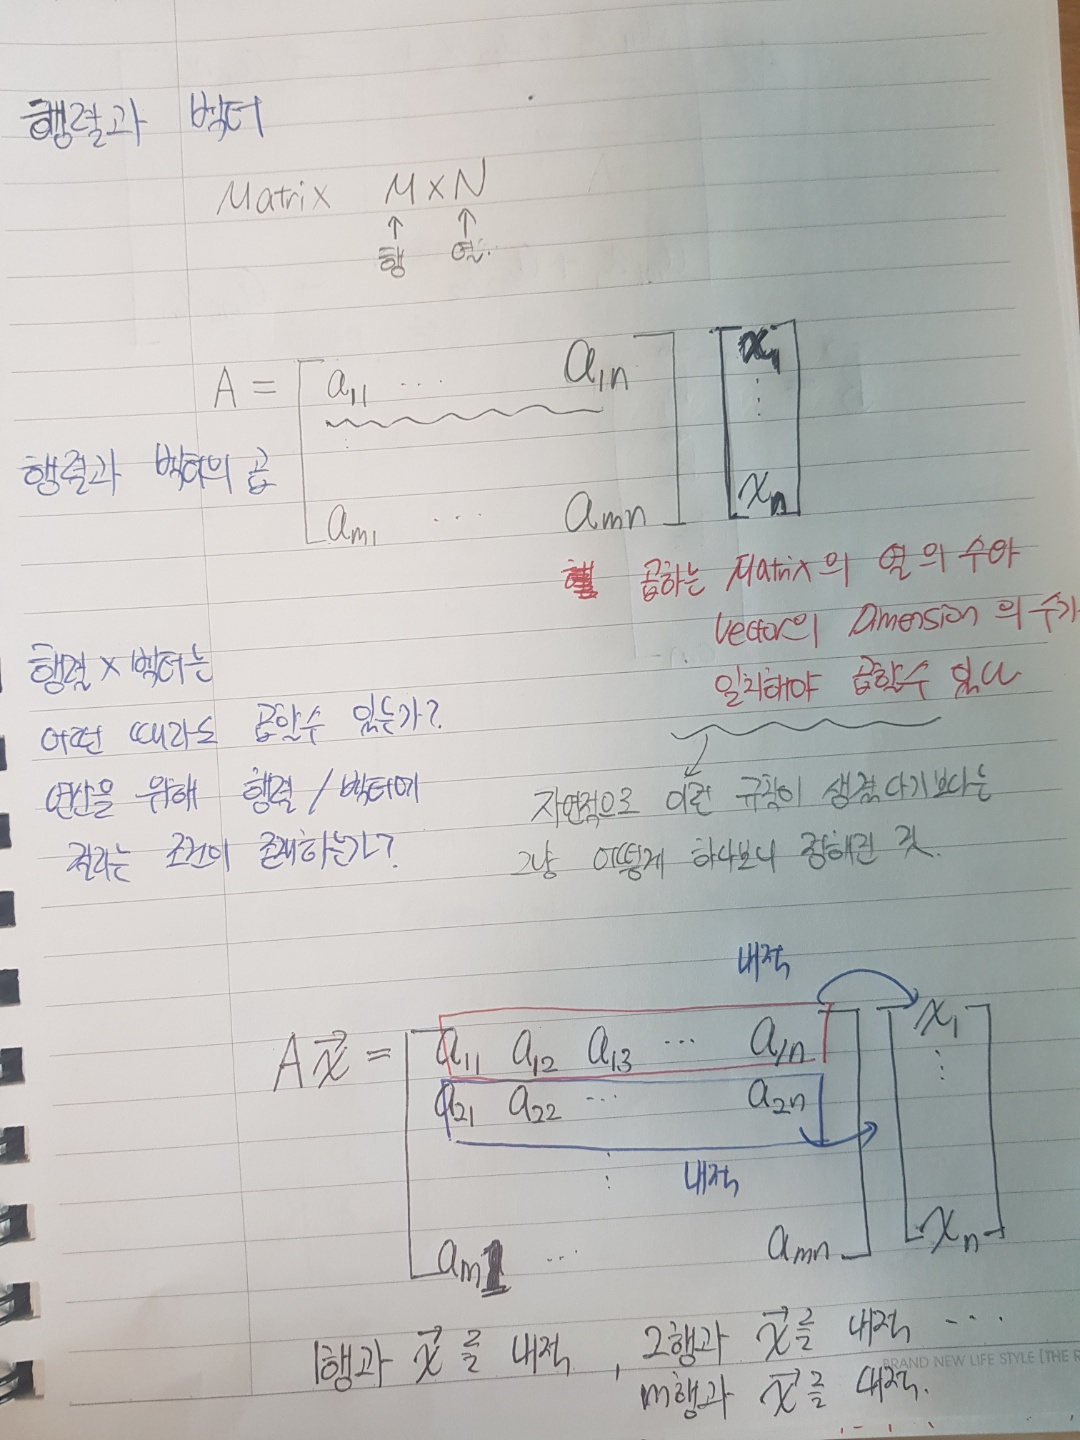 행렬과 벡터
Matrix M×N
↑ ↑
행 열
A = [ a₁₁ ··· a₁ₙ ] [ x₁
⋮ ⋮
aₘ₁ ··· aₘₙ ] xₙ ]
행렬과 벡터의 곱
곱하는 Matrix의 열의 수와
Vector의 Dimension의 수가
일치해야 곱할수 있다
행렬×벡터는
어떤 때라도 곱할수 있는가?
연산을 위해 행렬/벡터에
걸리는 조건이 존재하는가?
자연적으로 이런 규칙이 생겼다기보다는
그냥 어떻게 하다보니 정해진 것.
내적
Ax⃗ = [ a₁₁ a₁₂ a₁₃ ··· a₁ₙ ] [ x₁
a₂₁ a₂₂ ··· a₂ₙ ⋮
⋮ 내적
aₘ₁ ··· aₘₙ ] xₙ ]
1행과 x⃗를 내적, 2행과 x⃗를 내적 ···
m행과 x⃗를 내적.
BRAND NEW LIFE STYLE [THE